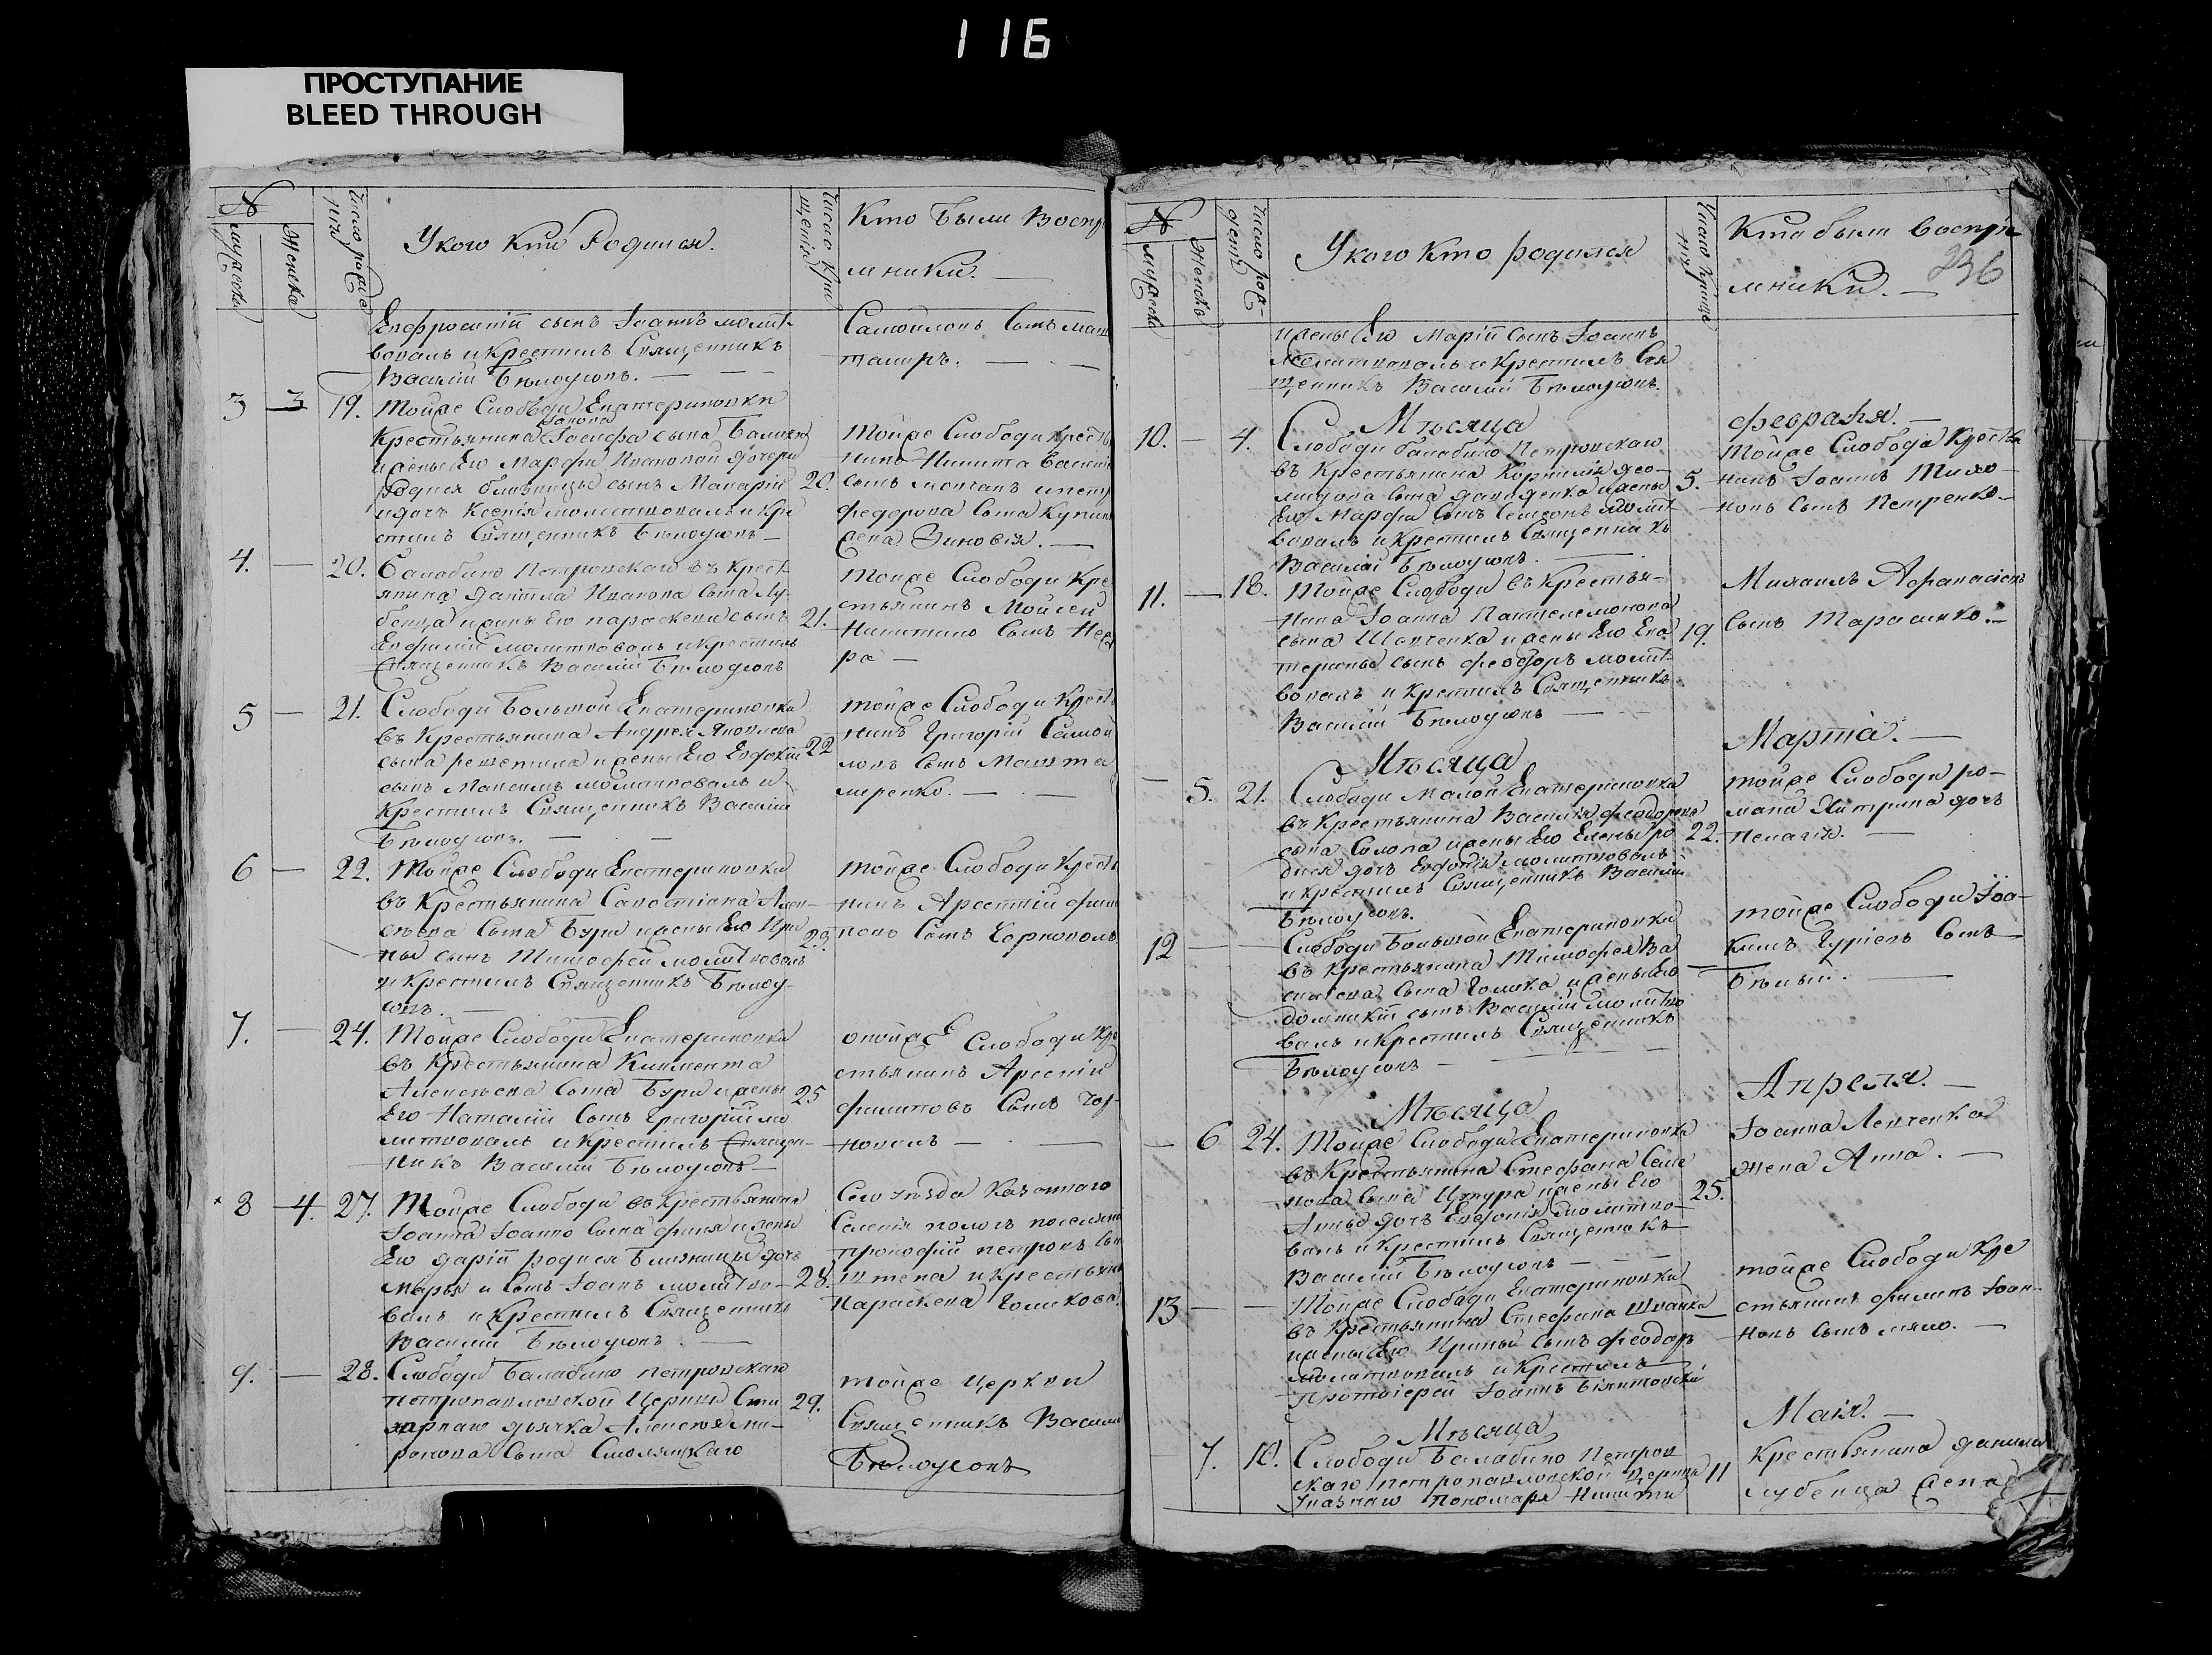 116
ПРОСТУПАНИЕ
BLEED THROUGH
№
мужеска
женска
Число рожде
нія
У кого кто Родился.
Число кре
щенія
Кто были Воспр
мники. —
Евфросиніи сынъ Іоаннъ молит
вовалъ и крестилъ Священникъ
Василій Бѣлоусовъ. — —
Самойловъ сынъ
3 — 3 19. Тойже Слободи Екатериновки
Іакова
Крестьянина Іосифа сына
и жены Его Марфи Ивановой дочери
родися близницы сынъ Макарій 20.
и дочь Ксенія молитвовалъ и кре
стилъ Священникъ Бѣлоусовъ —
Тойже Слободи крест
Никита
сынъ
федорова сына
жена Зиновія. —
4. — 20. Балабино Петровскаго въ крест
янина Даніила Иванова сына Лу-
бенца и жены Его параскеви сынъ 21.
Евфимій молитвовалъ и крестилъ
Священникъ Василій Бѣлоусовъ
Тойже Слободи Кре
стьянинъ Мойсей
Никитинъ сынъ
ра —
5 — 21. Слободи Большой Екатериновки
въ Крестьянина Андрея Яковлева
сына решетила и жены Его Евдокіи 22
сынъ Максимъ молитвовалъ и
крестилъ Священникъ Василій
Бѣлоусовъ. — —
тойже Слободи Крест
нинъ Григорій Самой
ловъ сынъ Машта
лиренко. — —
6 — 22. Тойже Слободи Екатериновки
въ Крестьянина Савостіана Алек-
сѣева сына Бури и жены Его Ири 23.
ны сынъ Тимофей молитвовалъ
и крестилъ Священникъ Бѣлоу-
совъ. —
тойже Слободи Крест
нинъ Арсентій фили
повъ сынъ Чорноволъ
7. — 24. Тойже Слободи Екатериновки
въ Крестьянина Климента
Алексѣева сына Бури и жены 25
Его Наталіи сынъ Григорій мо
литвовалъ и крестилъ Священ-
никъ Василій Бѣлоусовъ —
тойже Слободи Кре
стьянинъ Арсеній
филиповъ сынъ Чор-
новолъ — —
8 — 4. 27. Тойже Слободи въ крестьянина
Іоанна сына и жены
Его Даріи родися близницы дочь
Марья и сынъ Іоанъ молитво- 28.
валъ и крестилъ Священникъ
Василій Бѣлоусовъ. —
Сего уѣзда Казенного
Селенія пологъ поселян
прокофій петровъ сы
Штепа и крестьян
Параскева Голикова.
9. — 28. Слободи Балабино петровскаго
петропавловской Церкви
дьячка Алексѣя Ми-
ронова сына Смоляцкаго
29.
тойже церкви
Священникъ Васили
Бѣлоусовъ
№
мужеска
женска
Число рож-
денія
У кого кто родился
Число креще
нія
Кто были воспрі
мники. —
236
и жены Его Маріи сынъ Іоаннъ
молитвовалъ и крестилъ Свя
щенникъ Василій Бѣлоусовъ.
Мѣсяца февраля. —
10. — 4. Слободи балабино Петровскаго
въ Крестьянина Корнилія
сына Давиденка и жены 5.
Его Марфи сынъ Семеонъ молит
вовалъ и крестилъ Священникъ
Василій Бѣлоусовъ. —
Тойже Слободи Крестья
нинъ Іоаннъ
сынъ Петренко —
11. — 18. Тойже Слободи въ Крестья-
нина Іоанна Пантелемонова
сына Шевченка и жены Его Ека 19.
терины сынъ феодоръ молит
вовалъ и крестилъ Священникъ
Василій Бѣлоусовъ —
Михаилъ Афанасіевъ
сынъ Тарасенко. —
Мѣсяца Марта. —
— 5. 21. Слободи Малой Екатериновки
въ Крестьянина Василія феодорова
сына Солопа и жены Его Елены ро 22.
дися дочь Евдокія молитвовалъ
и крестилъ Священникъ Василій
Бѣлоусовъ.
тойже Слободи ро-
мана дочь
Пелагія. —
12 — Слободи Большой Екатериновки
въ Крестьянина Тимофея Ва
сильева сына Голика и жены Его —
Домникіи сынъ Василій молитво
валъ и крестилъ Священникъ
Бѣлоусовъ —
тойже Слободи Іоа-
кимъ Гуріевъ сынъ
Бѣлый. —
Мѣсяца Апреля. —
— 6 24. Тойже Слободи Екатериновки
въ Крестьянина Стефана Семе
нова сына и жены Его 25.
Анны дочь Евдокія молитво-
валъ и крестилъ Священникъ
Василій Бѣлоусовъ — —
Іоанна Левченка
жена Анна. —
13 — — Тойже Слободи Екатериновки
въ Крестьянина Стефана Швайка —
и жены Его Ирины сынъ феодоръ
молитвовалъ и крестилъ
Протоіерей Іоаннъ
тойже Слободи Кре
стьянинъ филипъ Іоан-
новъ сынъ —
Мѣсяца Маія. —
7. 10. Слободи Балабино Петров
скаго петропавловской Церкви 11
пономаря Никити
Крестьянина данила
лубенца жена